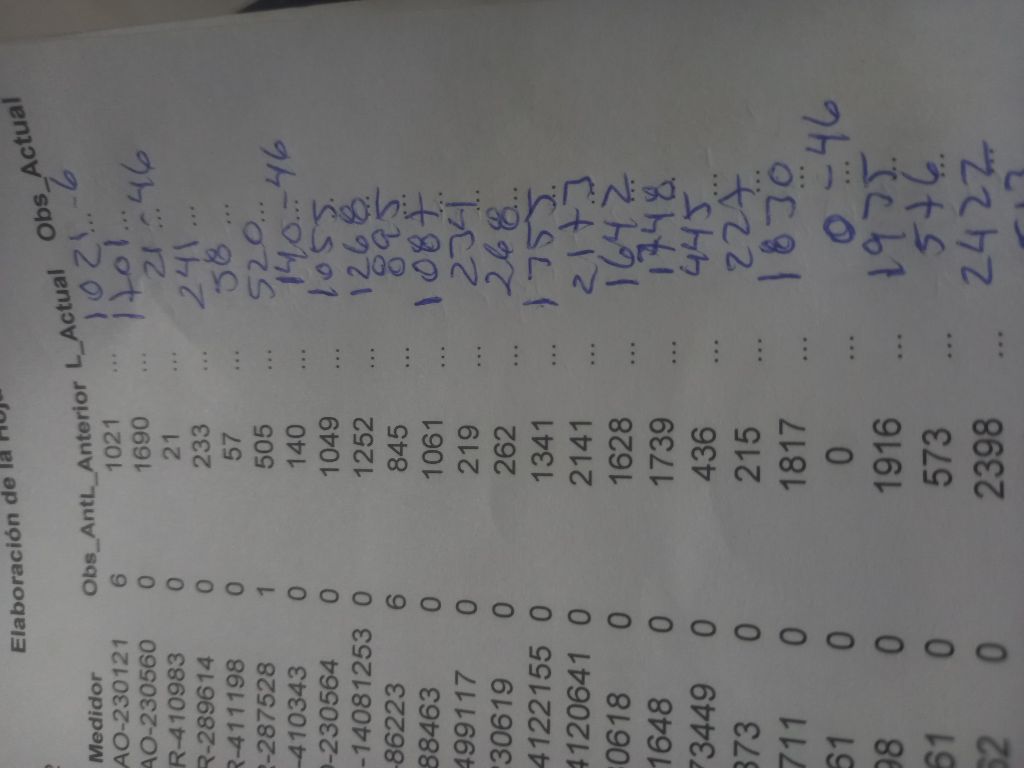 Elaboración de la Hoja
Medidor Obs_Ant L_Anterior L_Actual Obs_Actual
AO-230121 6 1021 ... 1021 ... -6
AO-230560 0 1690 ... 1701 ...
R-410983 0 21 ... 21 ... -46
R-289614 0 233 ... 241 ...
R-411198 0 57 ... 58 ...
R-287528 1 505 ... 520 ...
-410343 0 140 ... 140 ... -46
-230564 0 1049 ... 1055 ...
-14081253 0 1252 ... 1268 ...
-86223 6 845 ... 895 ...
88463 0 1061 ... 1087 ...
499117 0 219 ... 234 ...
30619 0 262 ... 268 ...
4122155 0 1341 ... 1355 ...
4120641 0 2141 ... 2173 ...
0618 0 1628 ... 1642 ...
1648 0 1739 ... 1748 ...
73449 0 436 ... 445 ...
373 0 215 ... 227 ...
711 0 1817 ... 1830 ...
61 0 0 ... 0 ... -46
98 0 1916 ... 1935 ...
61 0 573 ... 576 ...
62 0 2398 ... 2422 ...